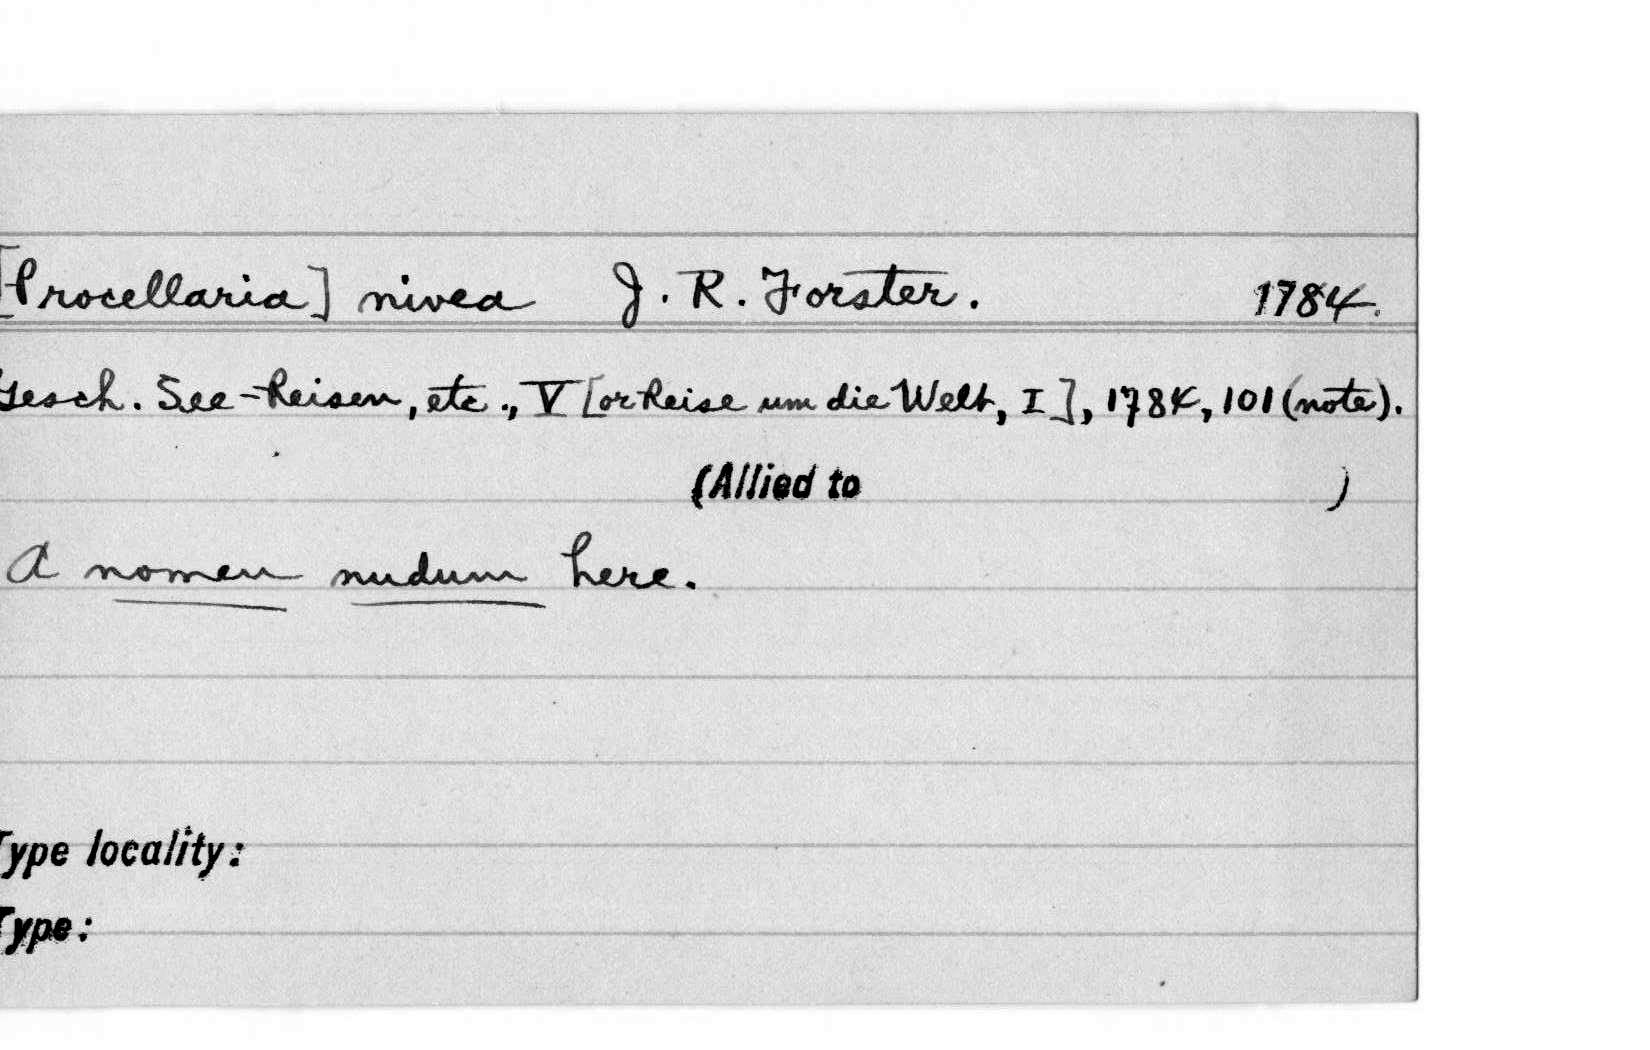 [Procellaria] nivea J. R. Forster. 1784.
Gesch. See-Reisen, etc., V [or Reise um die Welt, I], 1784, 101 (note).
(Allied to )
A nomen nudum here.
Type locality:
Type: